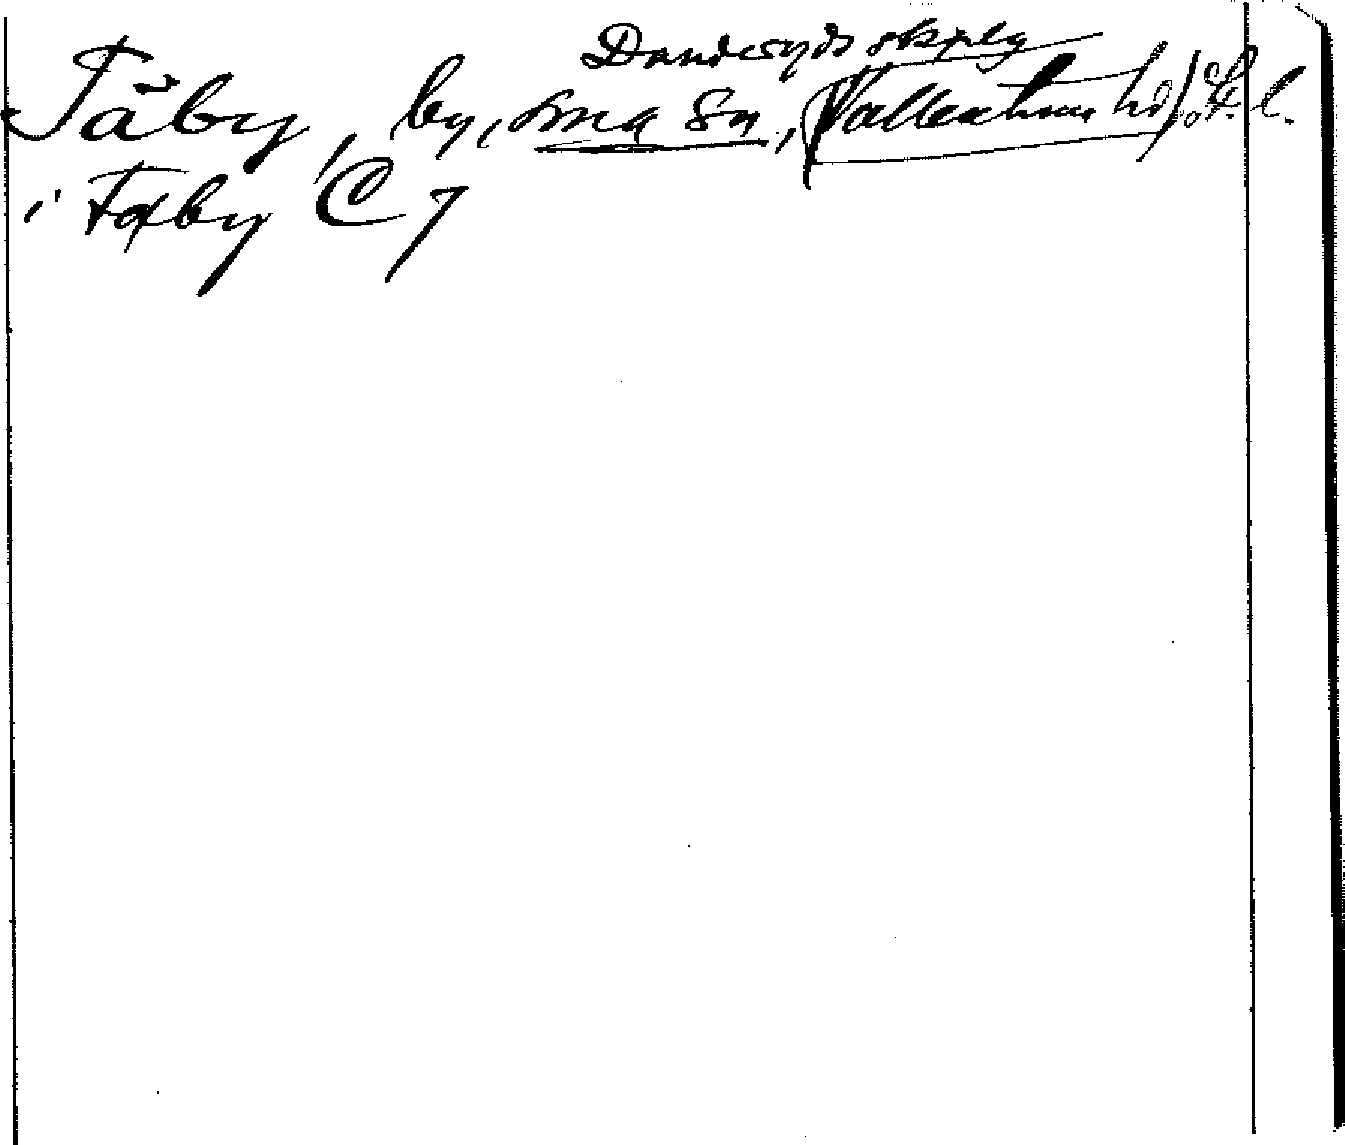 Danderyds skplg
Täby, by, sma sn, (Vallentuna hd) St. l.
i Täby C 7